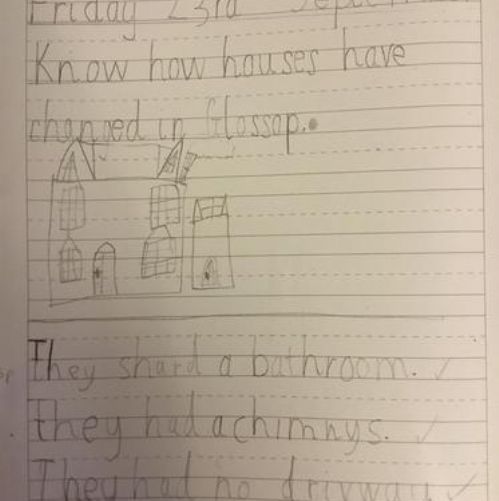 Friday 23rd September
Know how houses have
changed in Glossop.
They shard a bathroom.
sp
They had a chimnys.
They had no drivway